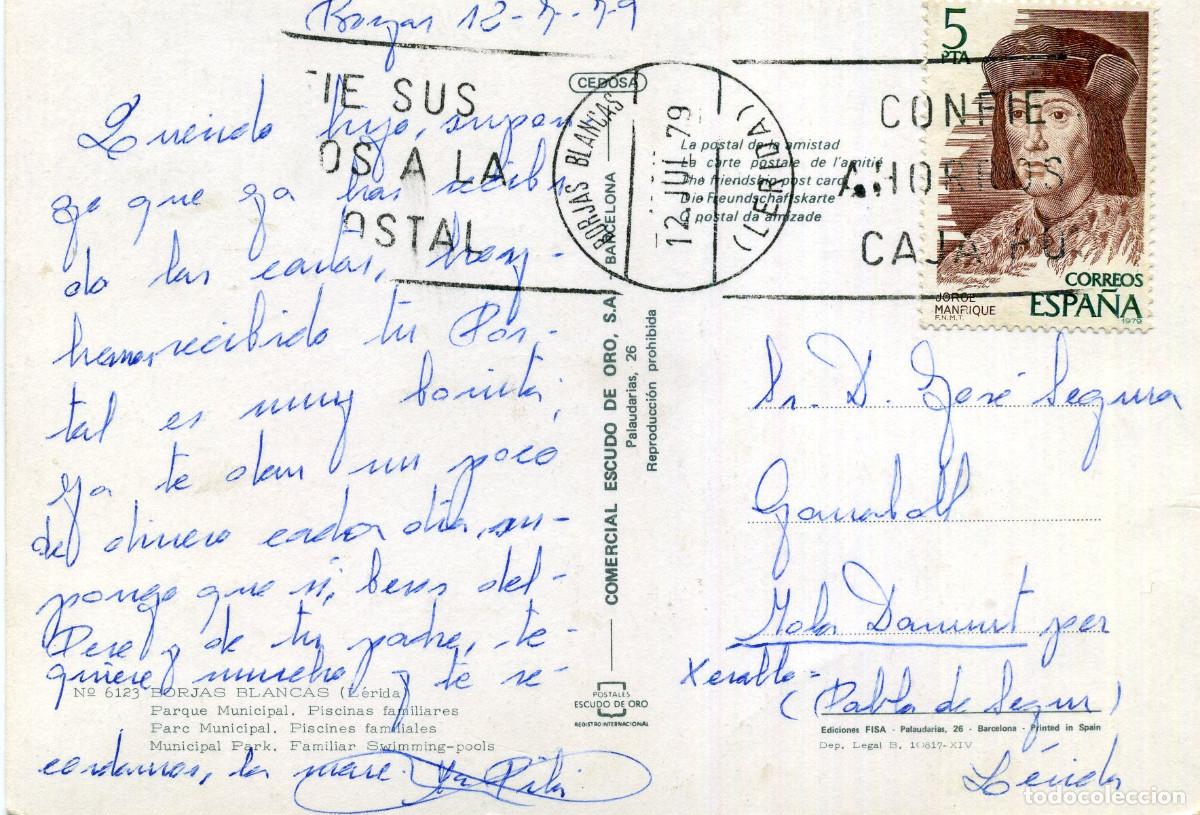 Borjas 12-7-79
Querido hijo, supon
go que ya has recibi
do las cartas, hoy-
hemos recibido tu Pos-
tal es muy bonita,
Ya te dan un poco
de dinero cada dia, su-
pongo que si, besos del-
Pere y de tu padre, te-
quiere mucho y te re-
cordamos, la mare
Nº 6123 BORJAS BLANCAS (Lérida)
Parque Municipal. Piscinas familiares
Parc Municipal. Piscines familiales
Municipal Park. Familiar Swimming-pools
TIE SUS
OS A LA
OSTAL
BORJAS BLANCAS
12 JUL 79
(LERIDA)
CONFIE
AHORROS
CAJA PO
CEDOSA
La postal de la amistad
La carte postale de l'amitié
The friendship post card
Die Freundschaftskarte
A postal da amizade
COMERCIAL ESCUDO DE ORO, S.A. BARCELONA
Palaudarias, 26
Reproducción prohibida
POSTALES
ESCUDO DE ORO
REGISTRO INTERNACIONAL
5
PTA
JORGE
MANRIQUE
F.N.M.T.
CORREOS
ESPAÑA
1979
Sr. D. José Segura
Garraboll
per
(Pobla de Segur)
Lérida
Ediciones FISA - Palaudarias, 26 - Barcelona - Printed in Spain
Dep. Legal B. 10817-XIV
todocoleccion